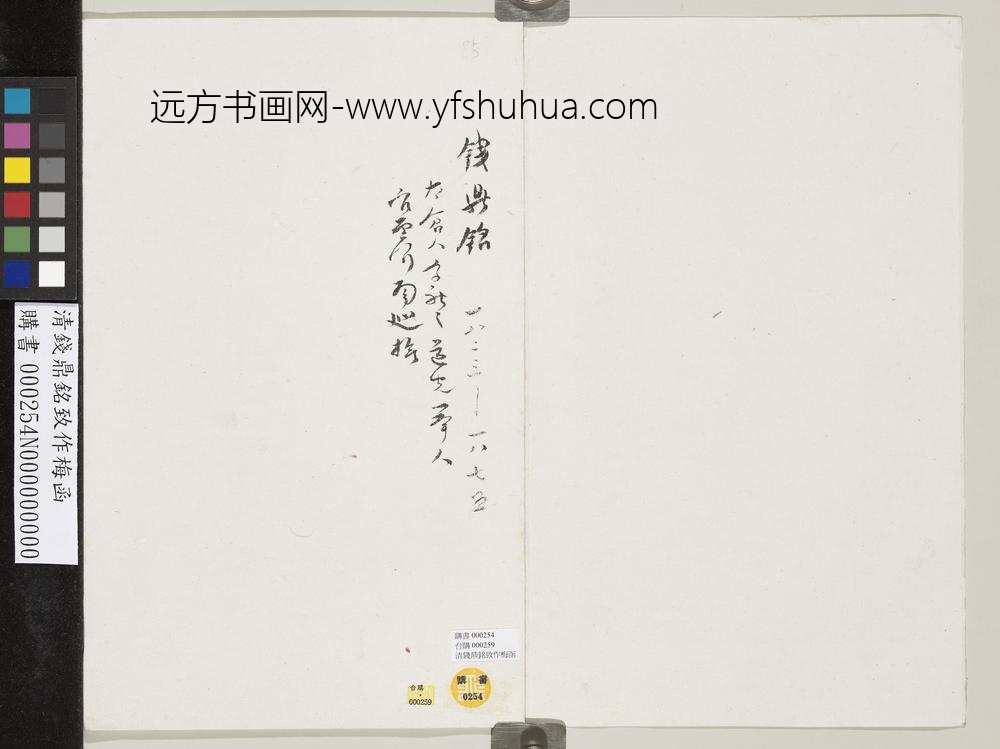 85
远方书画网-www.yfshuhua.com
錢鼎銘 一八二三—一八七五
太倉人 字新之 道光舉人
官至河南巡撫
清錢鼎銘致作梅函
購書 000254N000000000
購書 000254
台購 000259
清錢鼎銘致作梅函
台購
000259
購書
0254